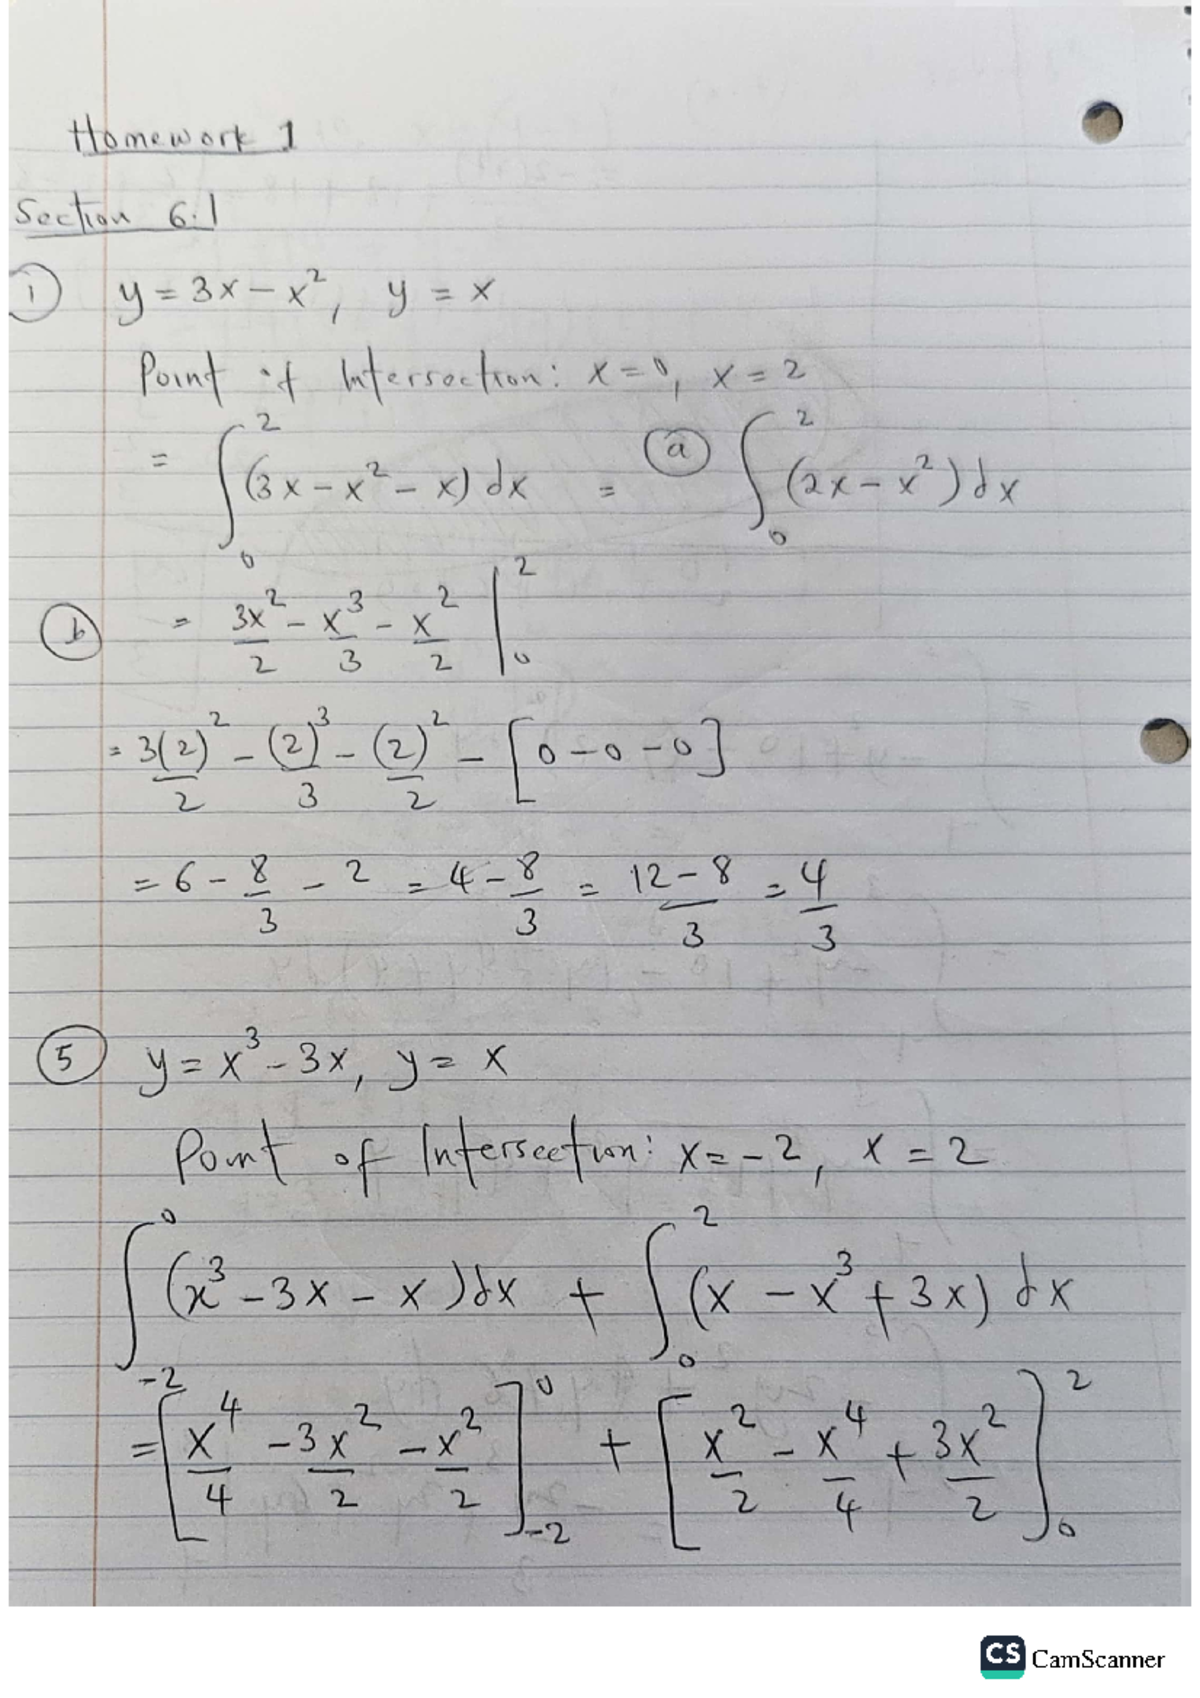 Homework 1
Section 6.1
① y = 3x - x², y = x
Point of Intersection: x = 0, x = 2
= ∫₀² (3x - x² - x) dx = ⓐ ∫₀² (2x - x²) dx
ⓑ = 3x²/2 - x³/3 - x²/2 |₀²
= 3(2)²/2 - (2)³/3 - (2)²/2 - [0 - 0 - 0]
= 6 - 8/3 - 2 = 4 - 8/3 = (12 - 8)/3 = 4/3
⑤ y = x³ - 3x, y = x
Point of Intersection: x = -2, x = 2
∫₋₂⁰ (x³ - 3x - x) dx + ∫₀² (x - x³ + 3x) dx
= [x⁴/4 - 3x²/2 - x²/2]₋₂⁰ + [x²/2 - x⁴/4 + 3x²/2]₀²
CS CamScanner